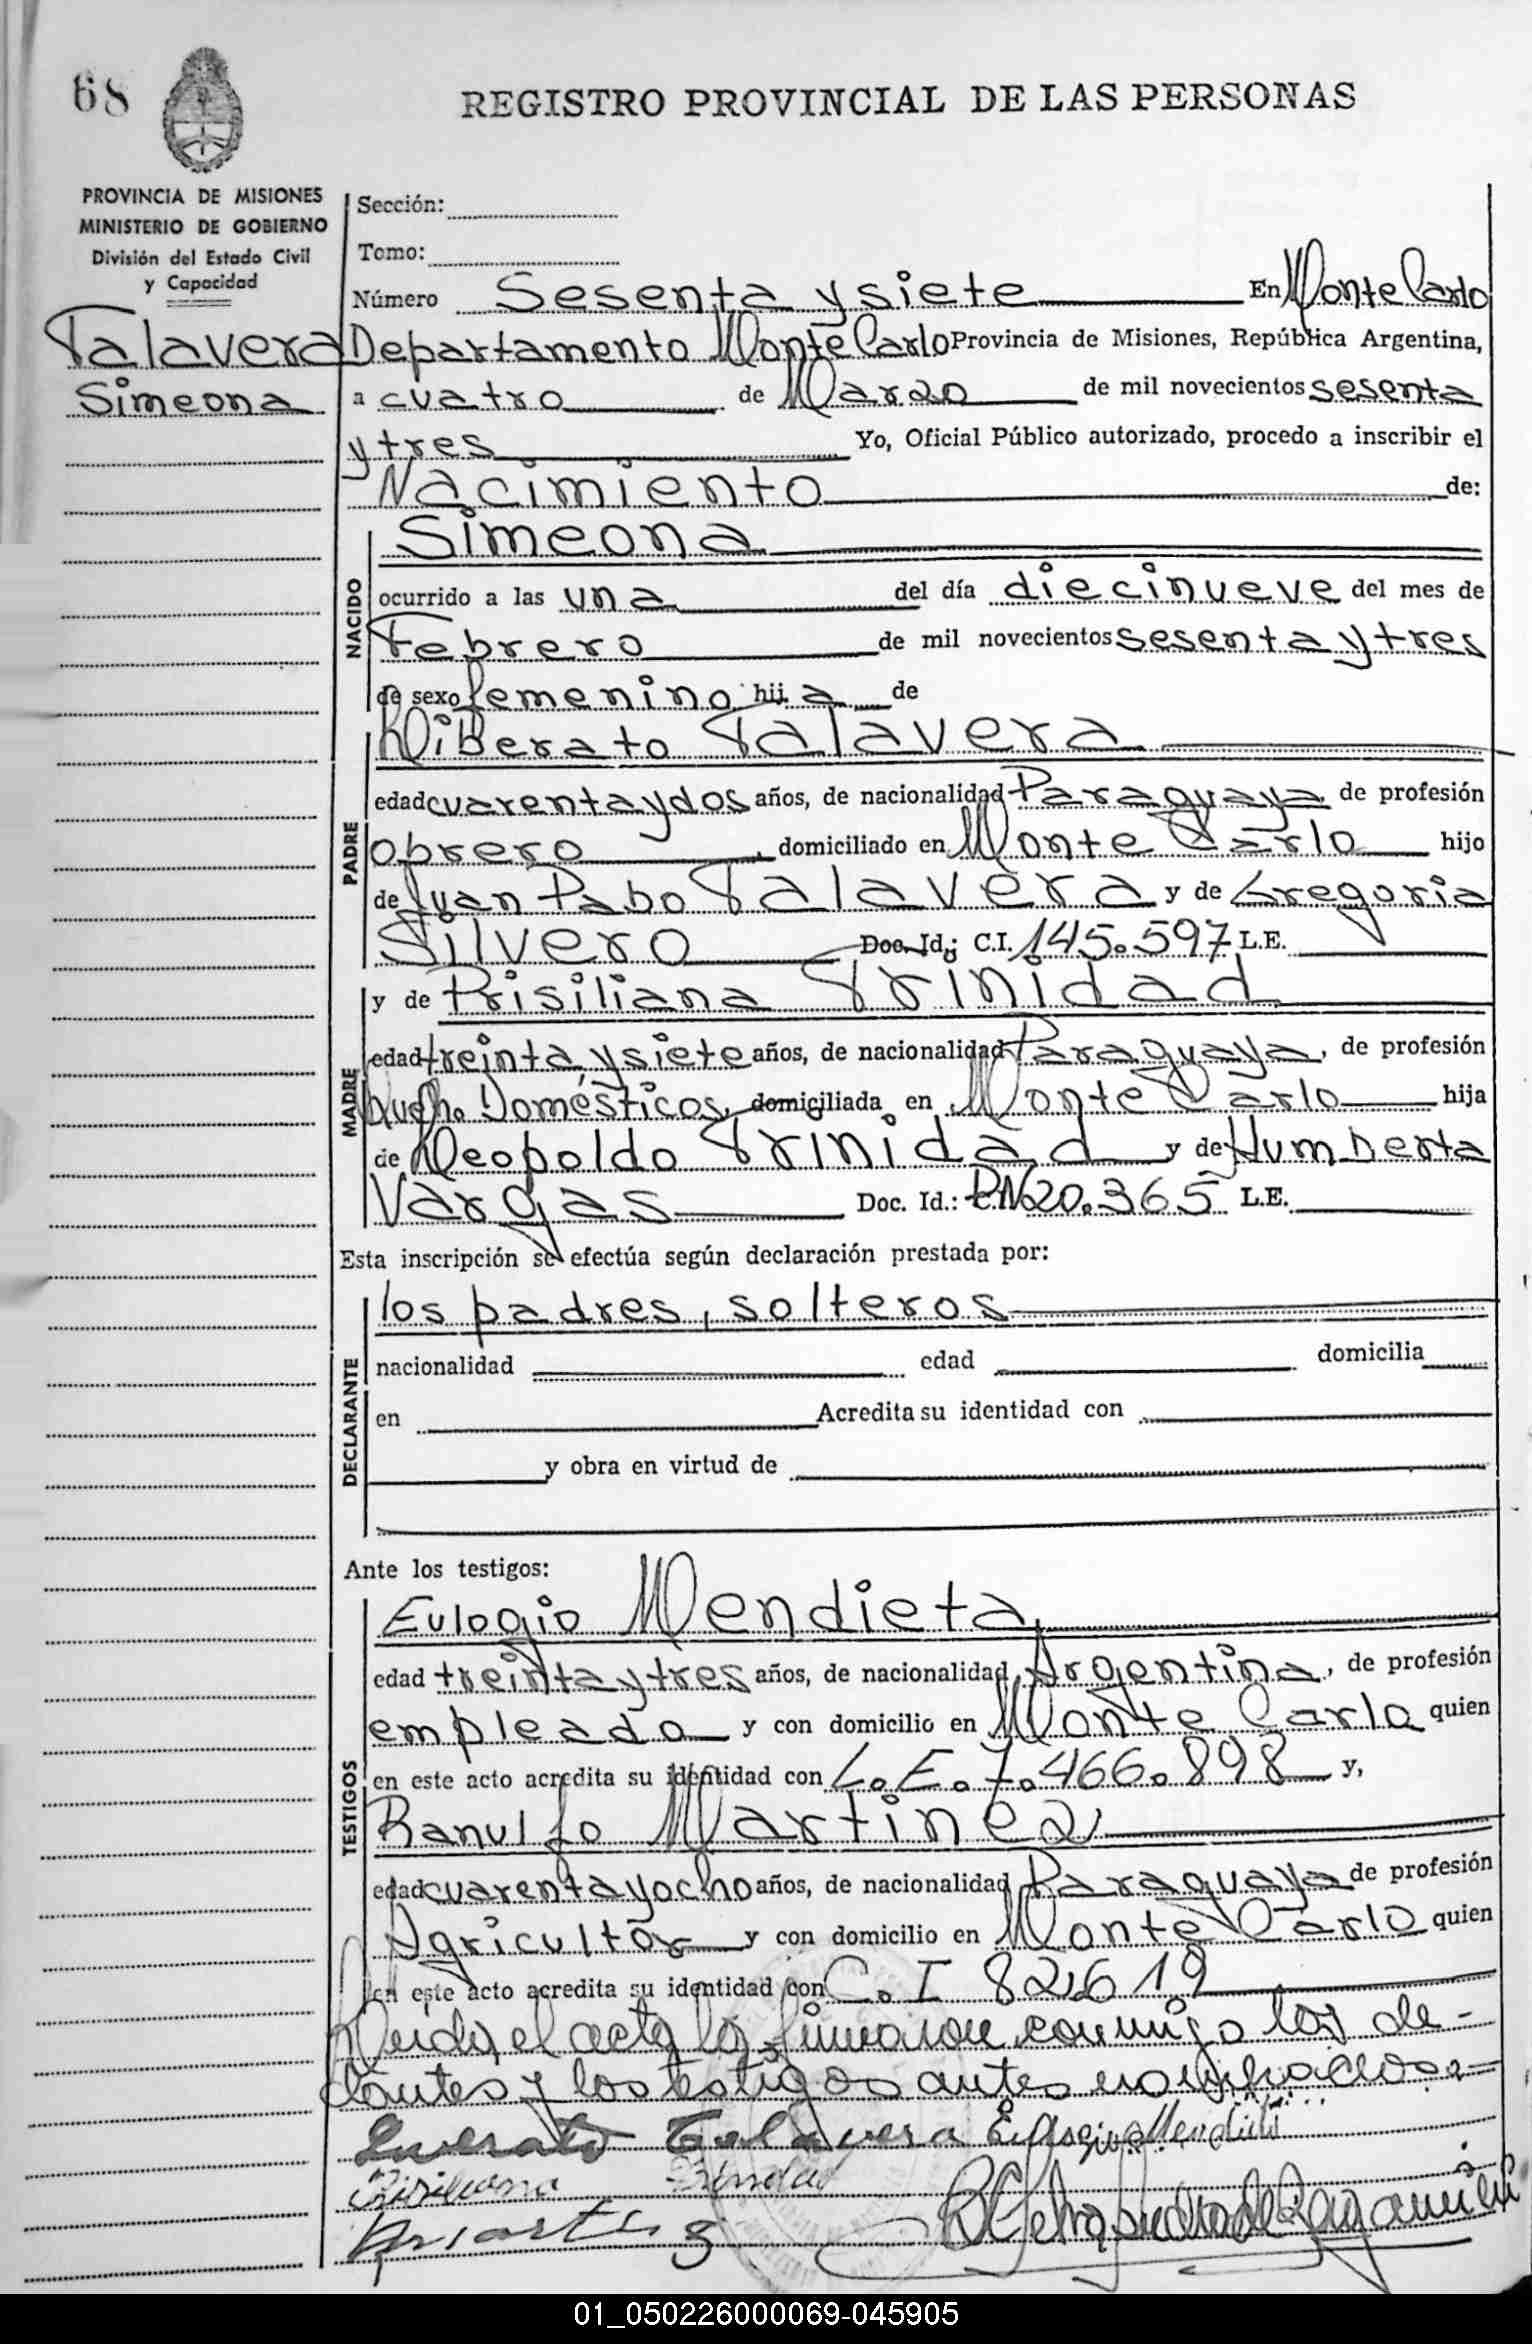 68
REGISTRO PROVINCIAL DE LAS PERSONAS
PROVINCIA DE MISIONES
MINISTERIO DE GOBIERNO
División del Estado Civil
y Capacidad
Talavera
Simeona
Sección:
Tomo:
Número Sesenta y siete En Monte Carlo
Departamento Monte Carlo Provincia de Misiones, República Argentina,
a cuatro de Marzo de mil novecientos sesenta
y tres Yo, Oficial Público autorizado, procedo a inscribir el
Nacimiento de:
NACIDO
Simeona
ocurrido a las una del día diecinueve del mes de
Febrero de mil novecientos sesenta y tres
de sexo femenino hija de
PADRE
Liberato Talavera
edad cuarenta y dos años, de nacionalidad Paraguaya, de profesión
obrero, domiciliado en Monte Carlo hijo
de Juan Pabo Talavera y de Gregoria
Silvero Doc. Id.: C.I. 145.597 L.E.
MADRE
y de Prisiliana Trinidad
edad treinta y siete años, de nacionalidad Paraguaya, de profesión
Queh. Domésticos, domiciliada en Monte Carlo hija
de Leopoldo Trinidad y de Humberta
Vargas Doc. Id.: 20.365 L.E.
Esta inscripción se efectúa según declaración prestada por:
DECLARANTE
los padres, solteros
nacionalidad edad domicilia
en Acredita su identidad con
y obra en virtud de
Ante los testigos:
TESTIGOS
Eulogio Mendieta
edad treinta y tres años, de nacionalidad Argentina, de profesión
empleado y con domicilio en Monte Carlo quien
en este acto acredita su identidad con L.E. 7.466.898 y,
Ranulfo Martinez
edad cuarenta y ocho años, de nacionalidad Paraguaya de profesión
Agricultor y con domicilio en Monte Carlo quien
en este acto acredita su identidad con C.I 82619
Leida el acta la firmaron conmigo los de-
clantes y los testigos antes nombrados.=
Liverato Talavera Eulogio Mendieta
Prisiliana Trinidad
Rmartinez
01_050226000069-045905